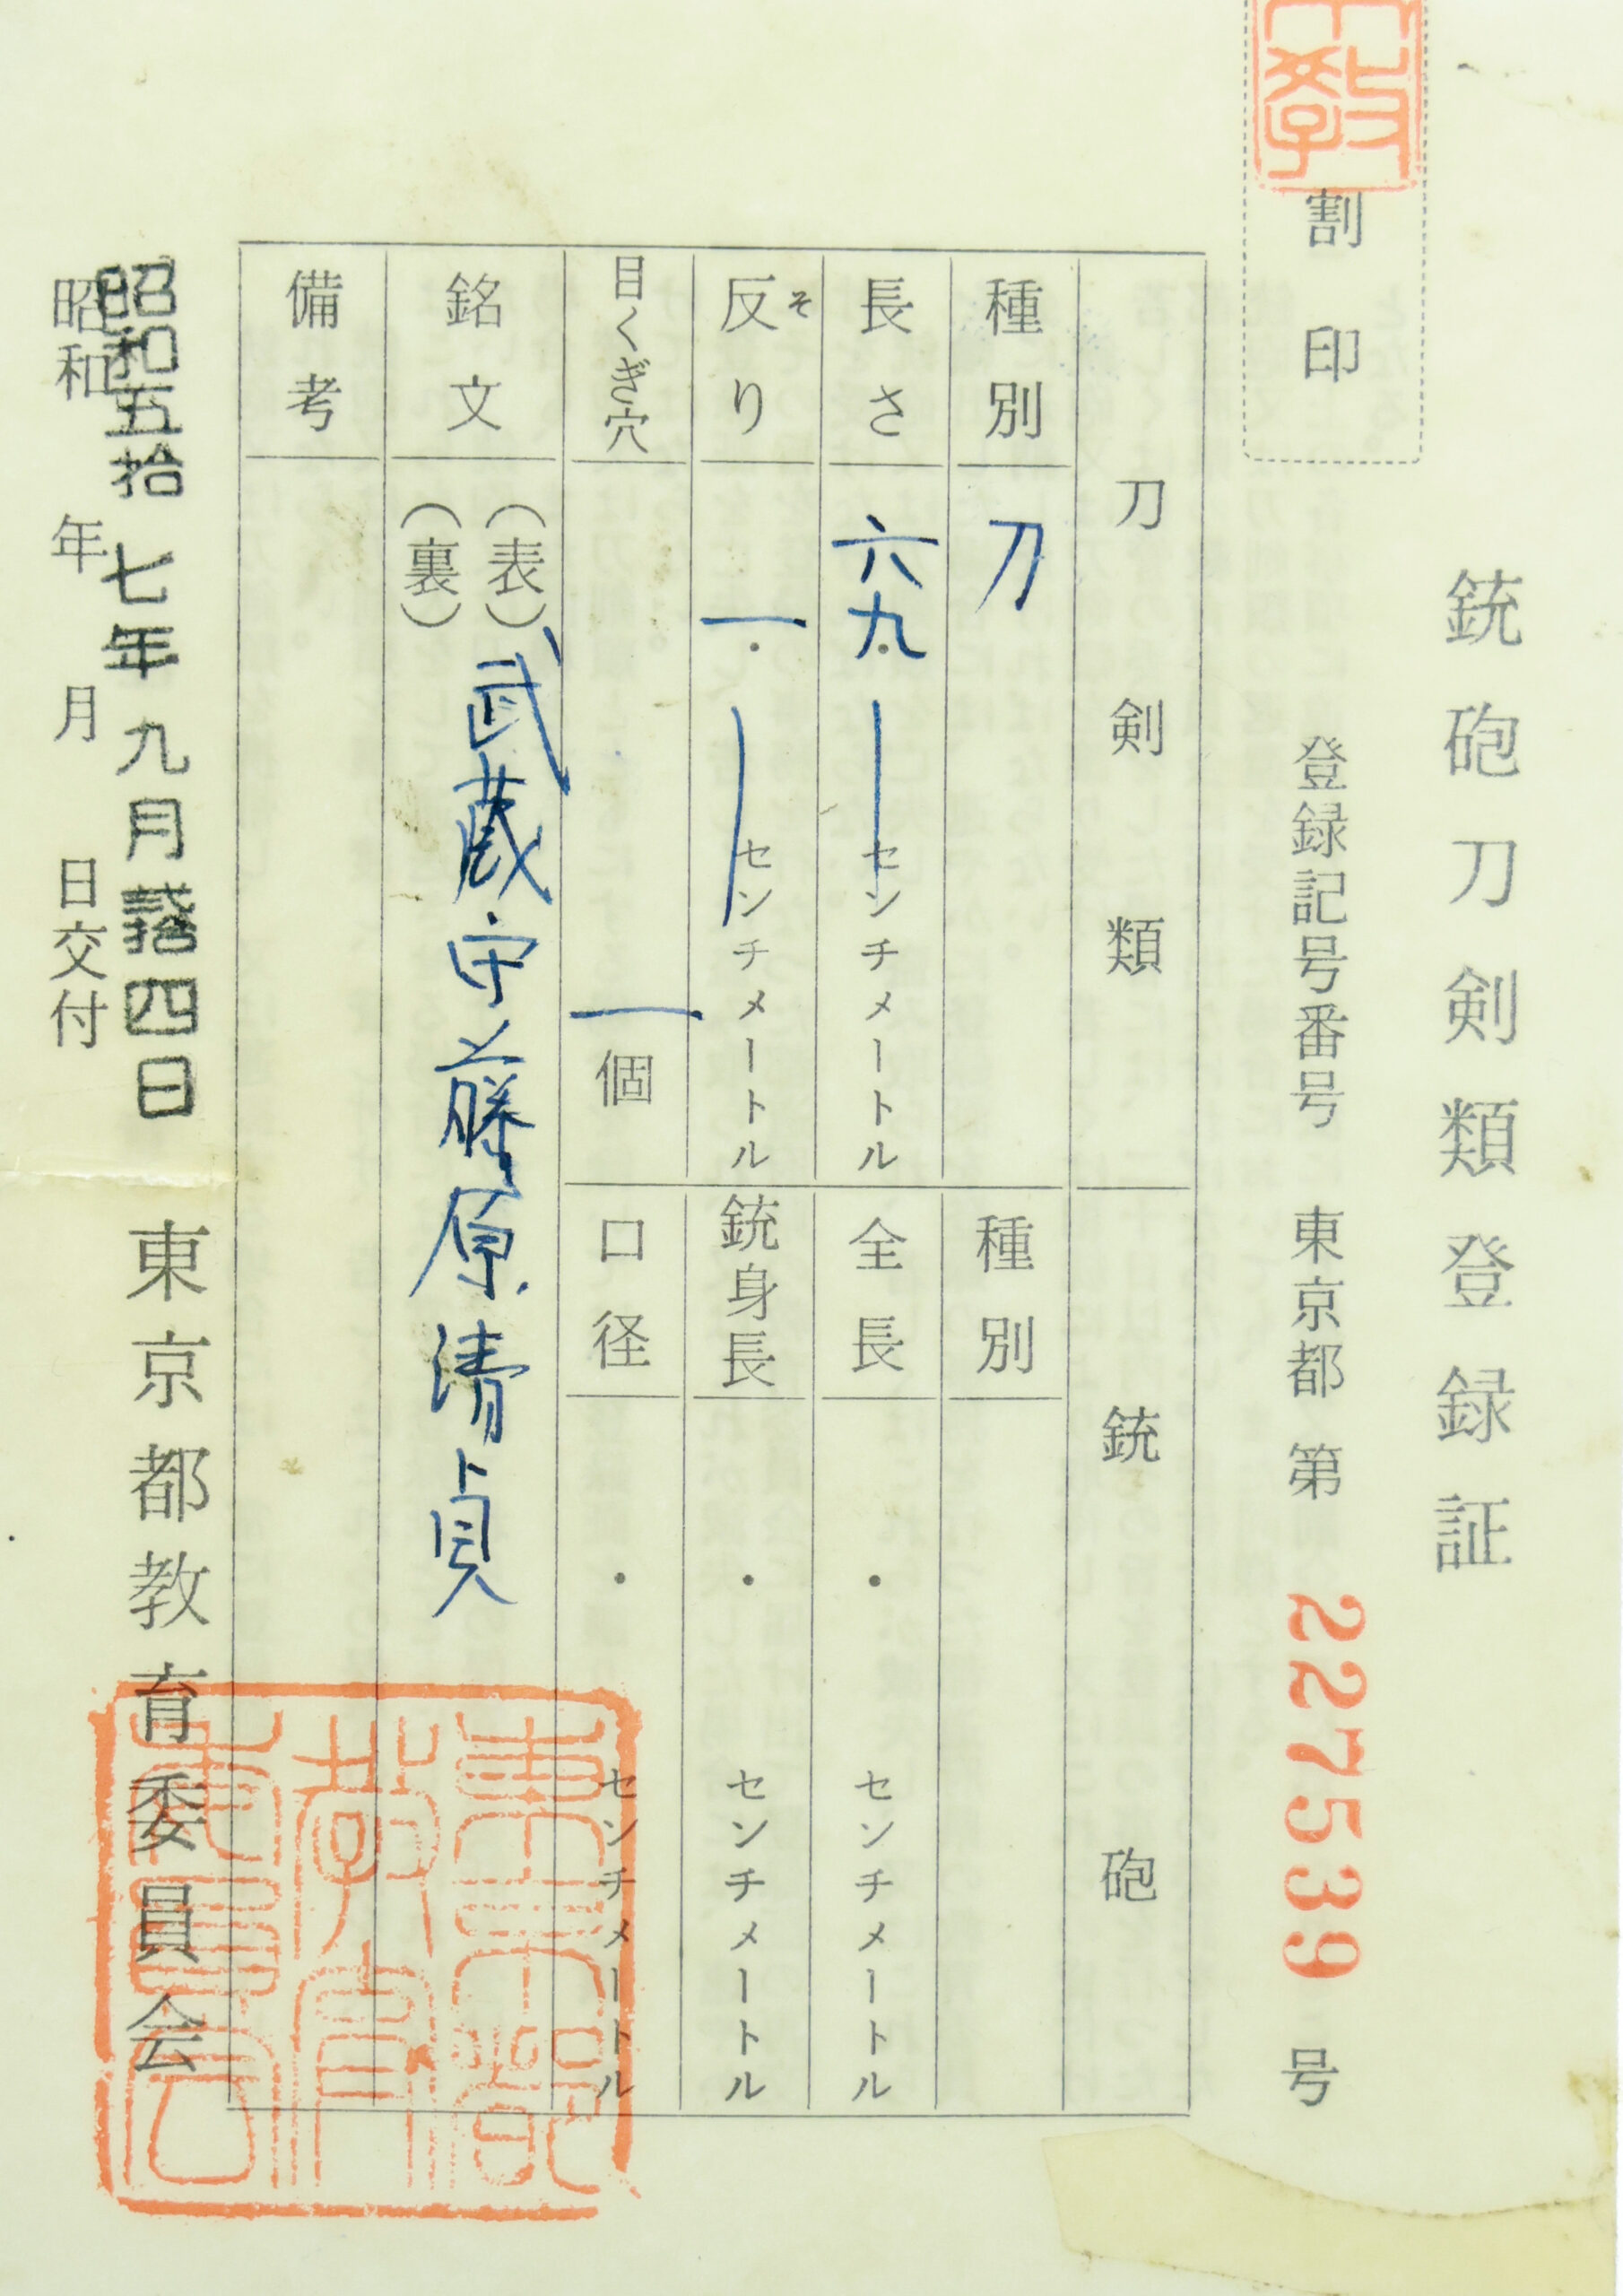 銃砲刀剣類登録証
割印
登録記号番号 東京都 第 227539 号
刀剣類
種別 刀
長さ 六九. センチメートル
反り 一. センチメートル
そ
目くぎ穴 一個
銘文 (表) 武蔵守藤原清貞
(裏)
備考
銃砲
種別
全長 ・ センチメートル
銃身長 ・ センチメートル
口径 ・ センチメートル
昭和五拾七年九月弐拾四日
昭和 年 月 日交付
東京都教育委員会